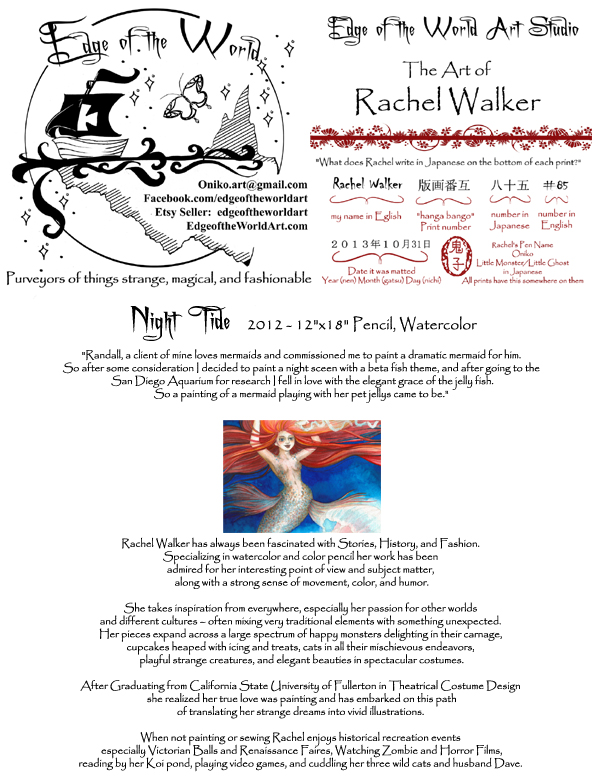 Edge of the World
Oniko.art@gmail.com
Facebook.com/edgeoftheworldart
Etsy Seller: edgeoftheworldart
EdgeoftheWorldArt.com
Purveyors of things strange, magical, and fashionable
Edge of the World Art Studio
The Art of
Rachel Walker
"What does Rachel write in Japanese on the bottom of each print?"
Rachel Walker 版画番互 八十五 #85
my name in Eglish
"hanga bango"
Print number
number in
Japanese
number in
English
2013年10月31日
Date it was matted
Year (nen) Month (gatsu) Day (nichi)
鬼子
Rachel's Pen Name
Oniko
Little Monster/Little Ghost
in Japanese
All prints have this somewhere on them
Night Tide 2012 - 12"x18" Pencil, Watercolor
"Randall, a client of mine loves mermaids and commissioned me to paint a dramatic mermaid for him.
So after some consideration I decided to paint a night sceen with a beta fish theme, and after going to the
San Diego Aquarium for research I fell in love with the elegant grace of the jelly fish.
So a painting of a mermaid playing with her pet jellys came to be."
Rachel Walker has always been fascinated with Stories, History, and Fashion.
Specializing in watercolor and color pencil her work has been
admired for her interesting point of view and subject matter,
along with a strong sense of movement, color, and humor.
She takes inspiration from everywhere, especially her passion for other worlds
and different cultures – often mixing very traditional elements with something unexpected.
Her pieces expand across a large spectrum of happy monsters delighting in their carnage,
cupcakes heaped with icing and treats, cats in all their mischievous endeavors,
playful strange creatures, and elegant beauties in spectacular costumes.
After Graduating from California State University of Fullerton in Theatrical Costume Design
she realized her true love was painting and has embarked on this path
of translating her strange dreams into vivid illustrations.
When not painting or sewing Rachel enjoys historical recreation events
especially Victorian Balls and Renaissance Faires, Watching Zombie and Horror Films,
reading by her Koi pond, playing video games, and cuddling her three wild cats and husband Dave.